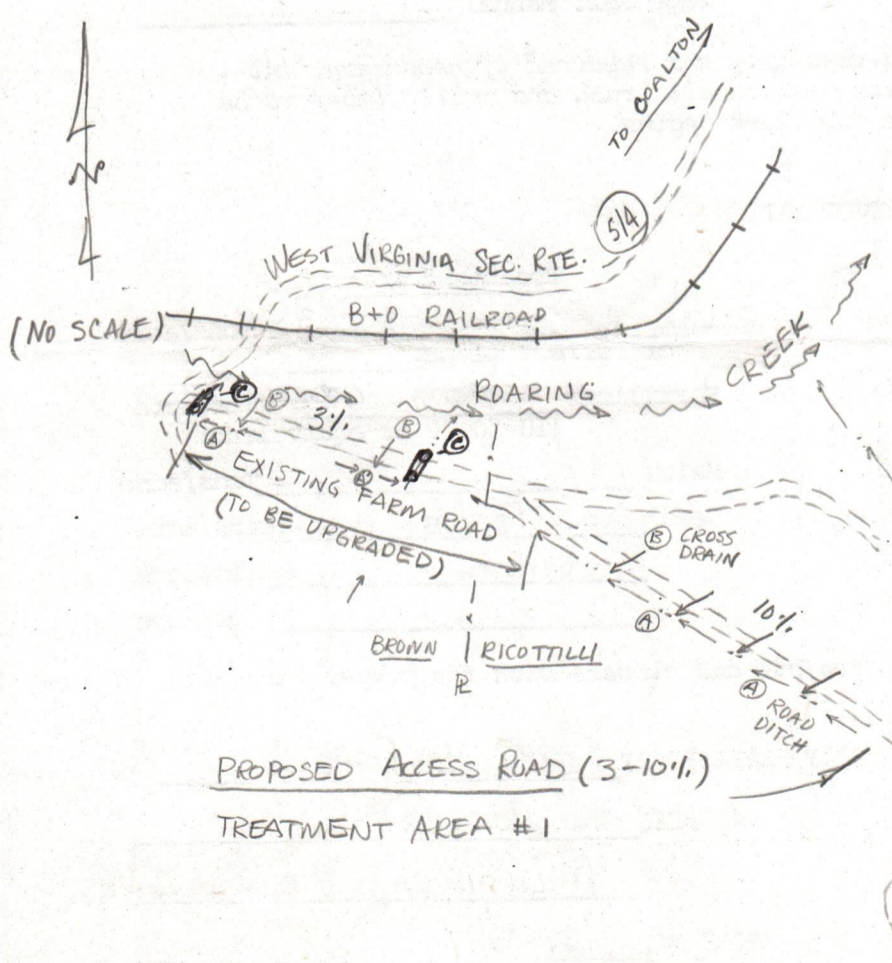 TO COALTON
5/4
WEST VIRGINIA SEC. RTE.
N
(NO SCALE)
B+O RAILROAD
ROARING CREEK
C
B
3%
A
B
C
A
EXISTING FARM ROAD
(TO BE UPGRADED)
B CROSS
DRAIN
A
10%
A ROAD
DITCH
BROWN | RICOTTILLI
PL
PROPOSED ACCESS ROAD (3-10%)
TREATMENT AREA #1